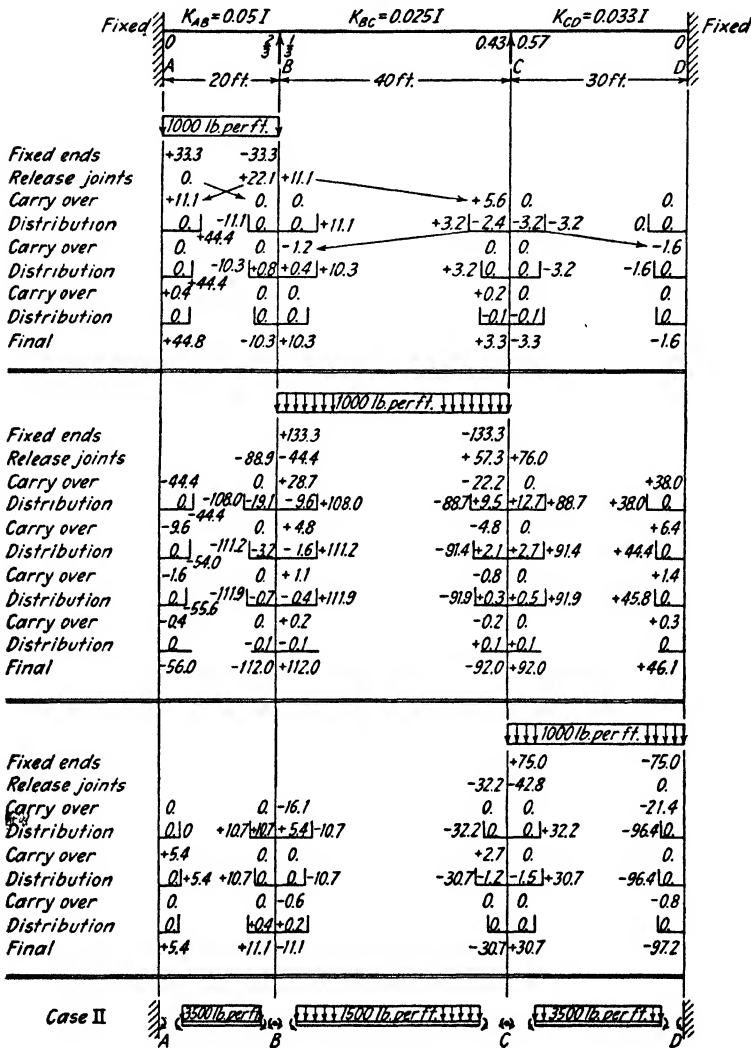 Fixed K_AB = 0.05 I K_BC = 0.025 I K_CD = 0.033 I Fixed
0 2/3 1/3 0.43 0.57 0
A B C D
20 ft. 40 ft. 30 ft.
1000 lb. per ft.
Fixed ends +33.3 -33.3
Release joints 0. +22.1 +11.1
Carry over +11.1 0. 0. +5.6 0. 0.
Distribution 0. -11.1 0. 0. +11.1 +3.2 -2.4 -3.2 -3.2 0. 0.
+44.4
Carry over 0. 0. -1.2 0. 0. -1.6
Distribution 0. -10.3 +0.8 +0.4 +10.3 +3.2 0. 0. -3.2 -1.6 0.
+44.4
Carry over +0.4 0. 0. +0.2 0. 0.
Distribution 0. 0. 0. -0.1 -0.1 0.
Final +44.8 -10.3 +10.3 +3.3 -3.3 -1.6
1000 lb. per ft.
Fixed ends +133.3 -133.3
Release joints -88.9 -44.4 +57.3 +76.0
Carry over -44.4 0. +28.7 -22.2 0. +38.0
Distribution 0. -108.0 -19.1 -9.6 +108.0 -88.7 +9.5 +12.7 +88.7 +38.0 0.
-44.4
Carry over -9.6 0. +4.8 -4.8 0. +6.4
Distribution 0. -111.2 -3.2 -1.6 +111.2 -91.4 +2.1 +2.7 +91.4 +44.4 0.
-54.0
Carry over -1.6 0. +1.1 -0.8 0. +1.4
Distribution 0. -111.9 -0.7 -0.4 +111.9 -91.9 +0.3 +0.5 +91.9 +45.8 0.
-55.6
Carry over -0.4 0. +0.2 -0.2 0. +0.3
Distribution 0. -0.1 -0.1 +0.1 +0.1 0.
Final -56.0 -112.0 +112.0 -92.0 +92.0 +46.1
1000 lb. per ft.
Fixed ends +75.0 -75.0
Release joints -32.2 -42.8 0.
Carry over 0. 0. -16.1 0. 0. -21.4
Distribution 0. 0 +10.7 +10.7 +5.4 -10.7 -32.2 0. 0. +32.2 -96.4 0.
Carry over +5.4 0. 0. +2.7 0. 0.
Distribution 0. +5.4 +10.7 0. 0. -10.7 -30.7 -1.2 -1.5 +30.7 -96.4 0.
Carry over 0. 0. -0.6 0. 0. -0.8
Distribution 0. +0.4 +0.2 0. 0. 0.
Final +5.4 +11.1 -11.1 -30.7 +30.7 -97.2
Case II 3500 lb. per ft. 1500 lb. per ft. 3500 lb. per ft.
A B C D